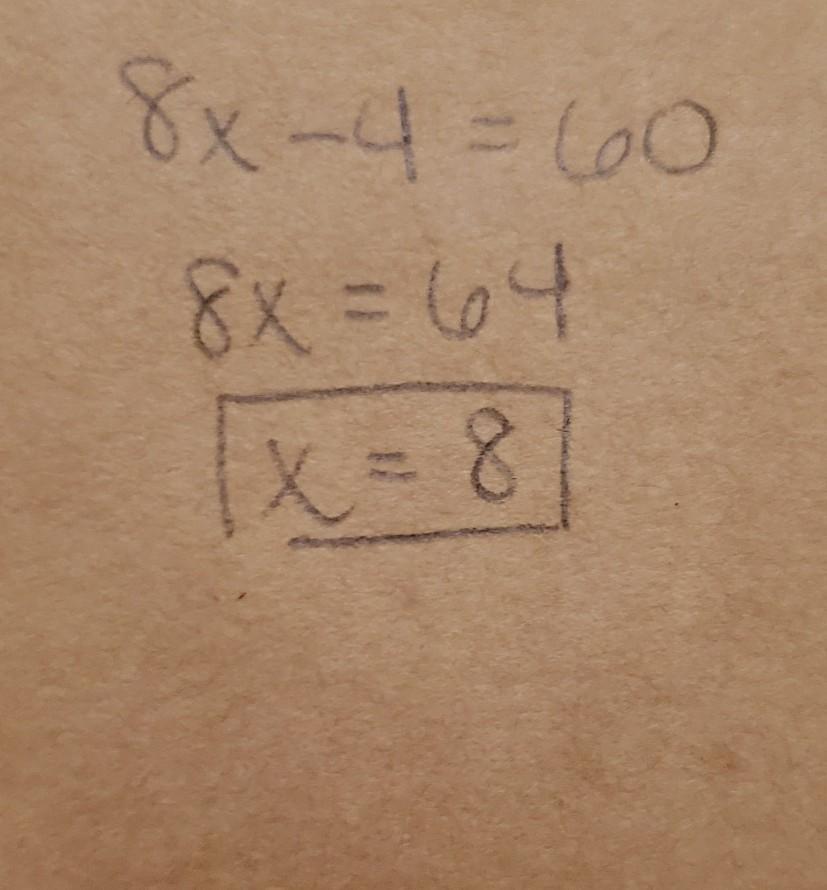 8x - 4 = 60
8x = 64
x = 8